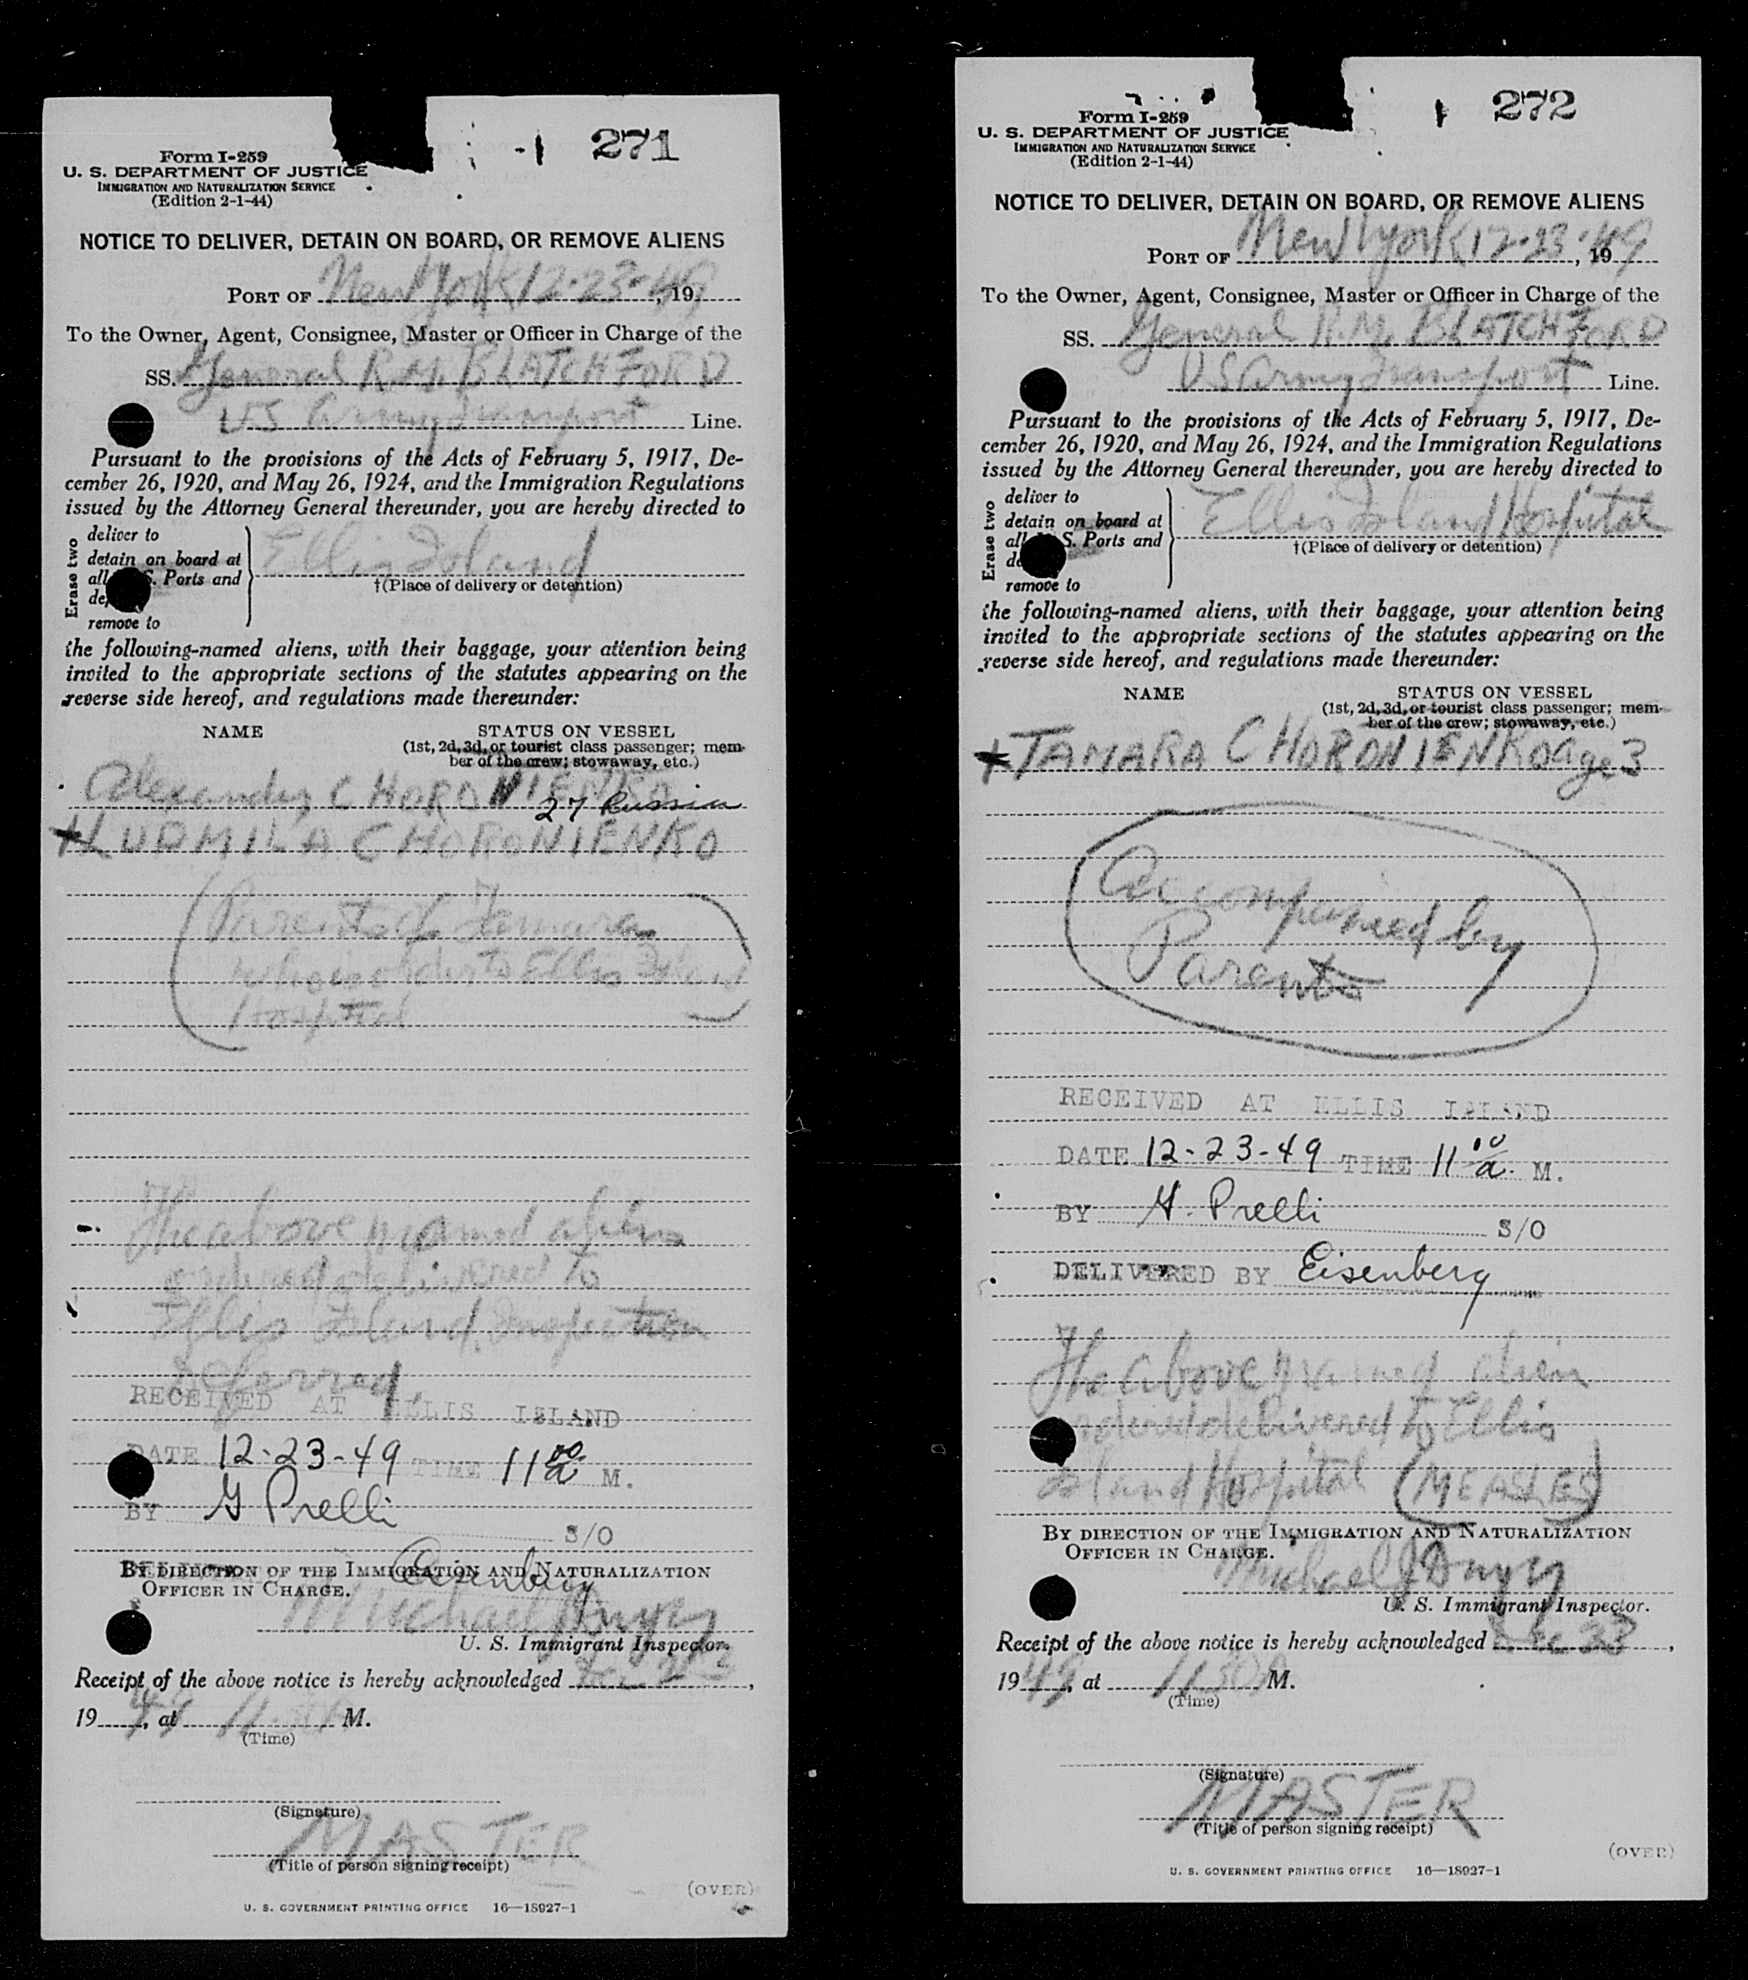 271
Form I-259
U. S. DEPARTMENT OF JUSTICE
IMMIGRATION AND NATURALIZATION SERVICE
(Edition 2-1-44)
NOTICE TO DELIVER, DETAIN ON BOARD, OR REMOVE ALIENS
PORT OF New York 12-23-49 19
To the Owner, Agent, Consignee, Master or Officer in Charge of the
SS. General R.M. BLATCHFORD
US Army Transport Line.
Pursuant to the provisions of the Acts of February 5, 1917, De-
cember 26, 1920, and May 26, 1924, and the Immigration Regulations
issued by the Attorney General thereunder, you are hereby directed to
Erase two
deliver to
detain on board at
all S. Ports and
remove to
Ellis Island
†(Place of delivery or detention)
the following-named aliens, with their baggage, your attention being
invited to the appropriate sections of the statutes appearing on the
reverse side hereof, and regulations made thereunder:
NAME STATUS ON VESSEL
(1st, 2d, 3d, or tourist class passenger; mem-
ber of the crew; stowaway, etc.)
CHORONIENKO
27 Russian
LUDMILA CHORONIENKO
(Parents of Tamara
to Ellis Island
Hospital)
The above named aliens
ordered delivered to
Ellis Island. Inspection
deferred.
RECEIVED AT ELLIS ISLAND
DATE 12-23-49 TIME 11 00 a M.
BY G Prelli S/O
Eisenberg
BY DIRECTION OF THE IMMIGRATION AND NATURALIZATION
OFFICER IN CHARGE.
Michael J Dwyer
U. S. Immigrant Inspector.
Receipt of the above notice is hereby acknowledged Dec 23,
1949, at 11:30A M.
(Time)
(Signature)
MASTER
(Title of person signing receipt)
(OVER)
U. S. GOVERNMENT PRINTING OFFICE 16—18927-1
272
Form I-259
U. S. DEPARTMENT OF JUSTICE
IMMIGRATION AND NATURALIZATION SERVICE
(Edition 2-1-44)
NOTICE TO DELIVER, DETAIN ON BOARD, OR REMOVE ALIENS
PORT OF New York 12-23, 1949
To the Owner, Agent, Consignee, Master or Officer in Charge of the
SS. General R.M. BLATCHFORD
US Army Transport Line.
Pursuant to the provisions of the Acts of February 5, 1917, De-
cember 26, 1920, and May 26, 1924, and the Immigration Regulations
issued by the Attorney General thereunder, you are hereby directed to
Erase two
deliver to
detain on board at
all S. Ports and
remove to
Ellis Island Hospital
†(Place of delivery or detention)
the following-named aliens, with their baggage, your attention being
invited to the appropriate sections of the statutes appearing on the
reverse side hereof, and regulations made thereunder:
NAME STATUS ON VESSEL
(1st, 2d, 3d, or tourist class passenger; mem-
ber of the crew; stowaway, etc.)
TAMARA CHORONIENKO age 3
Accompanied by
Parents
RECEIVED AT ELLIS ISLAND
DATE 12-23-49 TIME 11 10 a. M.
BY G. Prelli S/O
DELIVERED BY Eisenberg
The above named alien
ordered delivered to Ellis
Island Hospital (MEASLES)
BY DIRECTION OF THE IMMIGRATION AND NATURALIZATION
OFFICER IN CHARGE.
Michael J Dwyer
U. S. Immigrant Inspector.
Receipt of the above notice is hereby acknowledged Dec 23,
1949, at 1130A M.
(Time)
(Signature)
MASTER
(Title of person signing receipt)
(OVER)
U. S. GOVERNMENT PRINTING OFFICE 16—18927-1